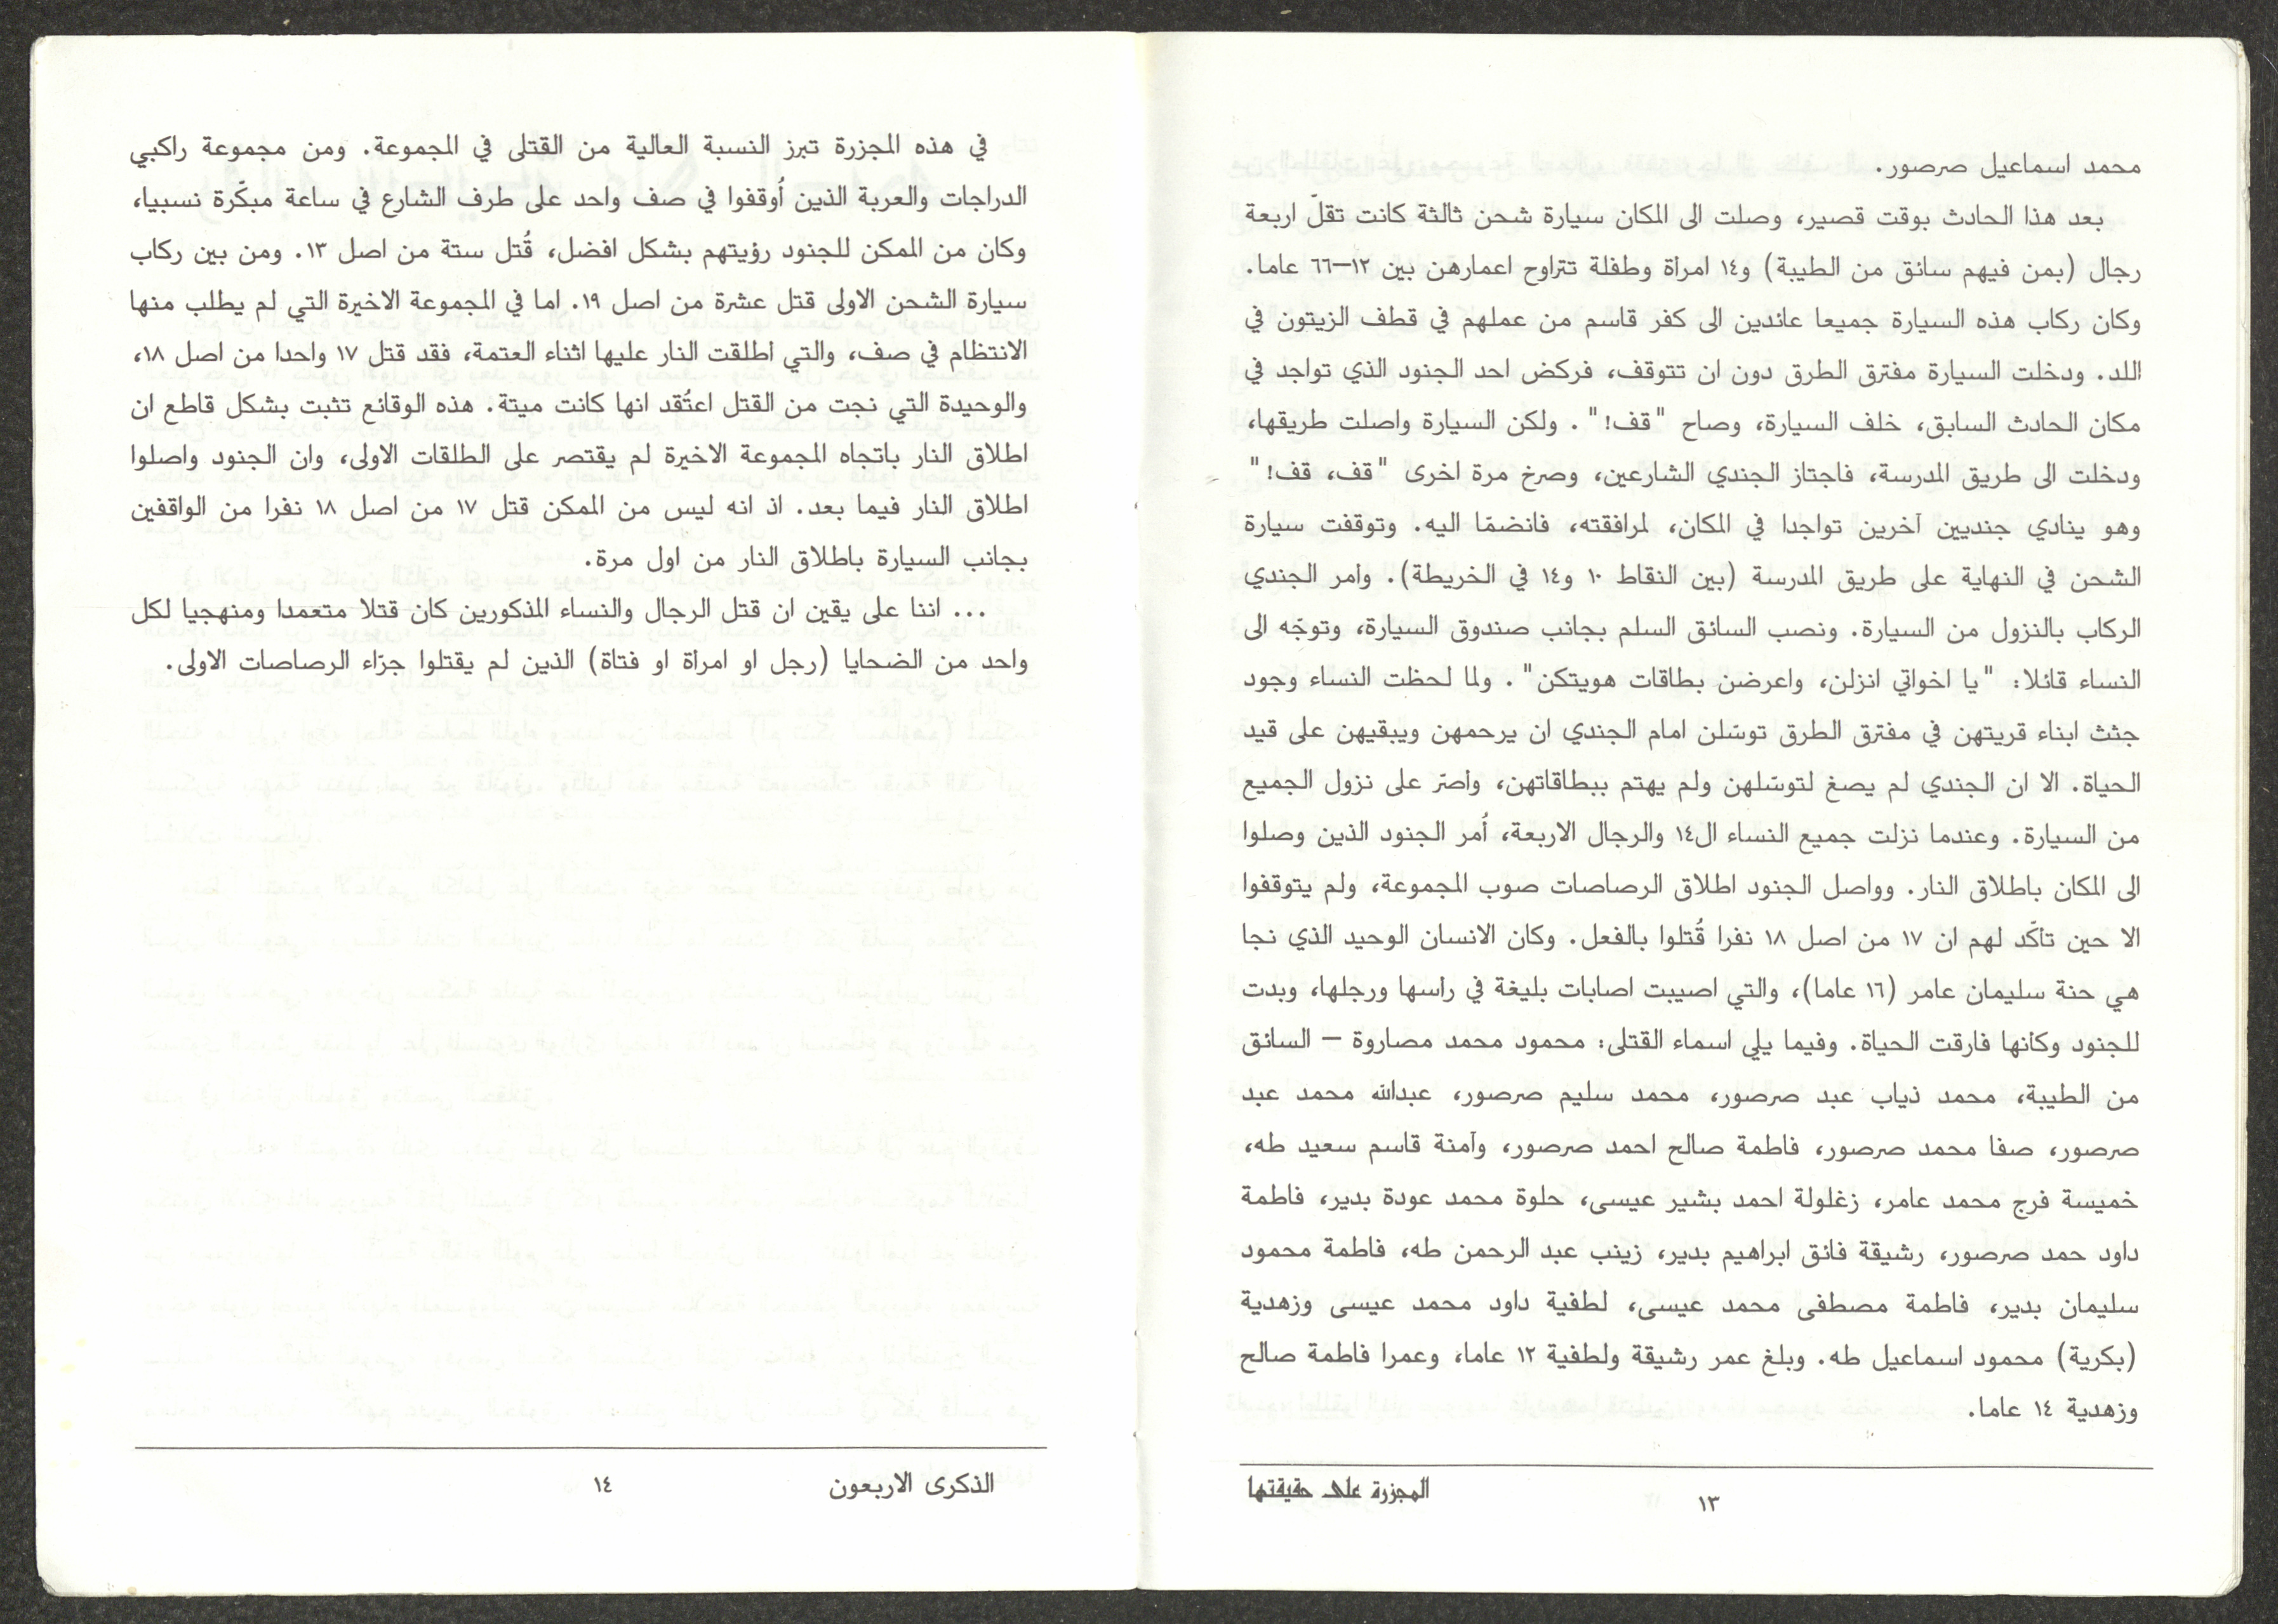 محمد اسماعيل صرصور.
بعد هذا الحادث بوقت قصير، وصلت الى المكان سيارة شحن ثالثة كانت تقلّ اربعة
رجال (بمن فيهم سائق من الطيبة) و١٤ امرأة وطفلة تتراوح اعمارهن بين ١٢–٦٦ عاما.
وكان ركاب هذه السيارة جميعا عائدين الى كفر قاسم من عملهم في قطف الزيتون في
اللد. ودخلت السيارة مفترق الطرق دون ان تتوقف، فركض احد الجنود الذي تواجد في
مكان الحادث السابق، خلف السيارة، وصاح "قف!". ولكن السيارة واصلت طريقها،
ودخلت الى طريق المدرسة، فاجتاز الجندي الشارعين، وصرخ مرة اخرى "قف، قف!"
وهو ينادي جنديين آخرين تواجدا في المكان، لمرافقته، فانضمّا اليه. وتوقفت سيارة
الشحن في النهاية على طريق المدرسة (بين النقاط ١٠ و١٤ في الخريطة). وأمر الجندي
الركاب بالنزول من السيارة. ونصب السائق السلم بجانب صندوق السيارة، وتوجّه الى
النساء قائلا: "يا اخواتي انزلن، واعرضن بطاقات هويتكن". ولما لحظت النساء وجود
جثث ابناء قريتهن في مفترق الطرق توسّلن امام الجندي ان يرحمهن ويبقيهن على قيد
الحياة. الا ان الجندي لم يصغ لتوسّلهن ولم يهتم ببطاقاتهن، وأصرّ على نزول الجميع
من السيارة. وعندما نزلت جميع النساء ال١٤ والرجال الاربعة، أُمر الجنود الذين وصلوا
الى المكان باطلاق النار. وواصل الجنود اطلاق الرصاصات صوب المجموعة، ولم يتوقفوا
الا حين تأكّد لهم ان ١٧ من اصل ١٨ نفرا قُتلوا بالفعل. وكان الانسان الوحيد الذي نجا
هي حنة سليمان عامر (١٦ عاما)، والتي اصيبت اصابات بليغة في رأسها ورجلها، وبدت
للجنود وكأنها فارقت الحياة. وفيما يلي اسماء القتلى: محمود محمد مصاروة – السائق
من الطيبة، محمد ذياب عبد صرصور، محمد سليم صرصور، عبدالله محمد عبد
صرصور، صفا محمد صرصور، فاطمة صالح احمد صرصور، وآمنة قاسم سعيد طه،
خميسة فرج محمد عامر، زغلولة احمد بشير عيسى، حلوة محمد عودة بدير، فاطمة
داود حمد صرصور، رشيقة فائق ابراهيم بدير، زينب عبد الرحمن طه، فاطمة محمود
سليمان بدير، فاطمة مصطفى محمد عيسى، لطفية داود محمد عيسى وزهدية
(بكرية) محمود اسماعيل طه. وبلغ عمر رشيقة ولطفية ١٢ عاما، وعمرا فاطمة صالح
وزهدية ١٤ عاما.
١٣
المجزرة على حقيقتها
في هذه المجزرة تبرز النسبة العالية من القتلى في المجموعة. ومن مجموعة راكبي
الدراجات والعربة الذين أُوقفوا في صف واحد على طرف الشارع في ساعة مبكّرة نسبيا،
وكان من الممكن للجنود رؤيتهم بشكل افضل، قُتل ستة من اصل ١٣. ومن بين ركاب
سيارة الشحن الاولى قتل عشرة من اصل ١٩. اما في المجموعة الاخيرة التي لم يطلب منها
الانتظام في صف، والتي أطلقت النار عليها اثناء العتمة، فقد قتل ١٧ واحدا من اصل ١٨،
والوحيدة التي نجت من القتل اعتُقد انها كانت ميتة. هذه الوقائع تثبت بشكل قاطع ان
اطلاق النار باتجاه المجموعة الاخيرة لم يقتصر على الطلقات الاولى، وان الجنود واصلوا
اطلاق النار فيما بعد. اذ انه ليس من الممكن قتل ١٧ من اصل ١٨ نفرا من الواقفين
بجانب السيارة باطلاق النار من اول مرة.
... اننا على يقين ان قتل الرجال والنساء المذكورين كان قتلا متعمدا ومنهجيا لكل
واحد من الضحايا (رجل او امرأة او فتاة) الذين لم يقتلوا جرّاء الرصاصات الاولى.
الذكرى الاربعون
١٤